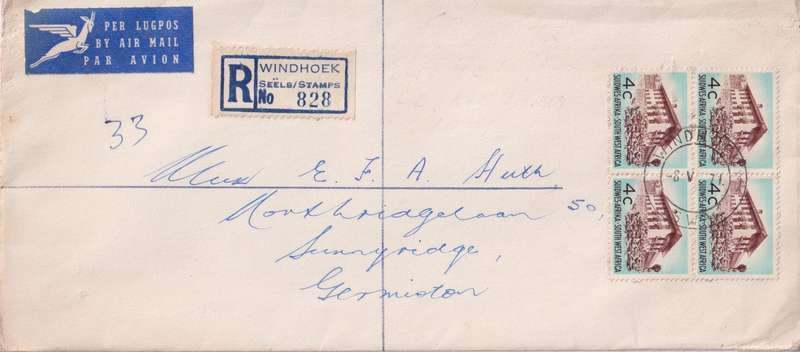 PER LUGPOS
BY AIR MAIL
PAR AVION
R
WINDHOEK
SEËLS/STAMPS
No 828
33
E. F. A. Huth,
Northridgelaan 50,
Sunnyridge,
Germiston
4c
SUIDWES-AFRIKA · SOUTH WEST AFRICA
4c
SUIDWES-AFRIKA · SOUTH WEST AFRICA
4c
SUIDWES-AFRIKA · SOUTH WEST AFRICA
4c
SUIDWES-AFRIKA · SOUTH WEST AFRICA